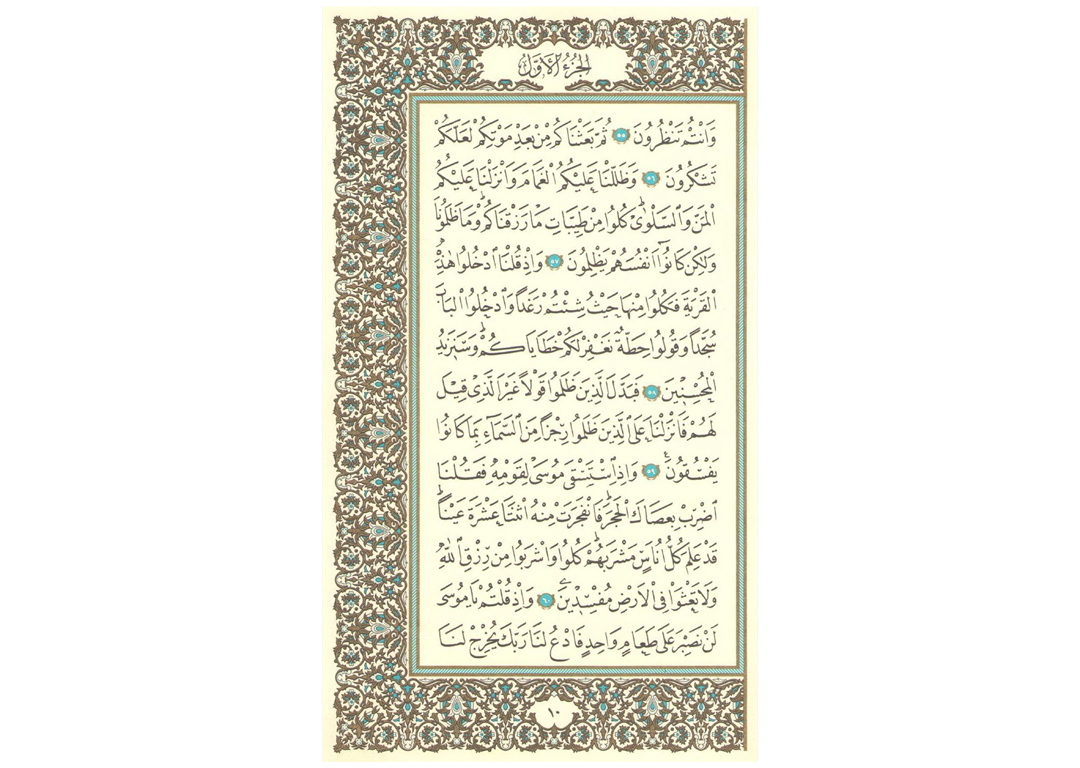 الجزء الاول
وَاَنْتُمْ تَنْظُرُونَ ٥٥ ثُمَّ بَعَثْنَاكُمْ مِنْ بَعْدِ مَوْتِكُمْ لَعَلَّكُمْ
تَشْكُرُونَ ٥٦ وَظَلَّلْنَا عَلَيْكُمُ الْغَمَامَ وَاَنْزَلْنَا عَلَيْكُمُ
الْمَنَّ وَالسَّلْوٰىۜ كُلُوا مِنْ طَيِّبَاتِ مَا رَزَقْنَاكُمْۜ وَمَا ظَلَمُونَا
وَلٰكِنْ كَانُٓوا اَنْفُسَهُمْ يَظْلِمُونَ ٥٧ وَاِذْ قُلْنَا ادْخُلُوا هٰذِهِ
الْقَرْيَةَ فَكُلُوا مِنْهَا حَيْثُ شِئْتُمْ رَغَداً وَادْخُلُوا الْبَابَ
سُجَّداً وَقُولُوا حِطَّةٌ نَغْفِرْ لَكُمْ خَطَايَاكُمْۜ وَسَنَزِيدُ
الْمُحْسِنِينَ ٥٨ فَبَدَّلَ الَّذِينَ ظَلَمُوا قَوْلاً غَيْرَ الَّذِي قِيلَ
لَهُمْ فَاَنْزَلْنَا عَلَى الَّذِينَ ظَلَمُوا رِجْزاً مِنَ السَّمَٓاءِ بِمَا كَانُوا
يَفْسُقُونَ۟ ٥٩ وَاِذِ اسْتَسْقٰى مُوسٰى لِقَوْمِهِ فَقُلْنَا
اضْرِبْ بِعَصَاكَ الْحَجَرَۜ فَانْفَجَرَتْ مِنْهُ اثْنَتَا عَشْرَةَ عَيْناًۜ
قَدْ عَلِمَ كُلُّ اُنَاسٍ مَشْرَبَهُمْۜ كُلُوا وَاشْرَبُوا مِنْ رِزْقِ اللّٰهِ
وَلَا تَعْثَوْا فِي الْاَرْضِ مُفْسِدِينَ ٦٠ وَاِذْ قُلْتُمْ يَا مُوسٰى
لَنْ نَصْبِرَ عَلٰى طَعَامٍ وَاحِدٍ فَادْعُ لَنَا رَبَّكَ يُخْرِجْ لَنَا
١٠